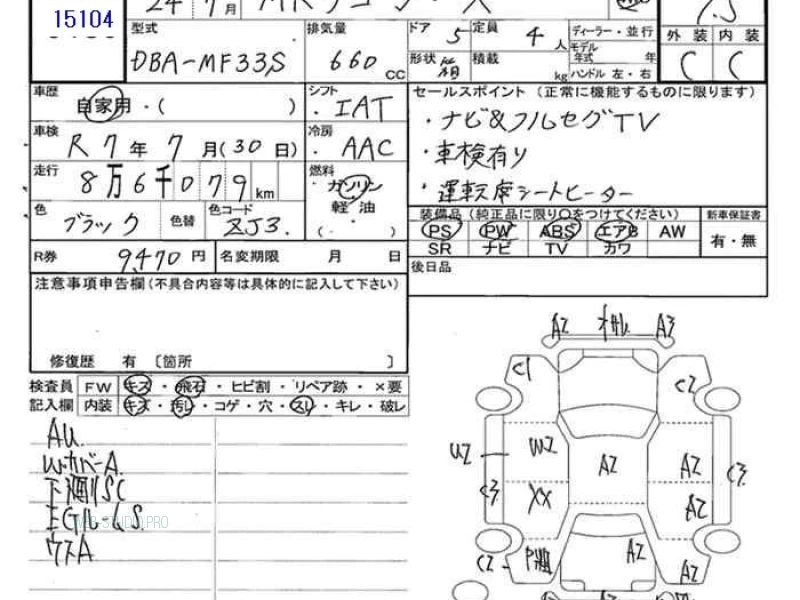 15104
24年7月 MRワゴン
型式 排気量 ドア 5 定員 4人 ディーラー・並行 外装 内装
DBA-MF33S 660 CC 形状 箱 積載 kg モデル年式 年 ハンドル 左・右 C C
車歴 自家用・( ) シフト ・IAT セールスポイント (正常に機能するものに限ります)
車検 R7年7月(30日) 冷房 ・AAC ・ナビ&フルセグTV
・車検有り
走行 8万6千079km 燃料 ガソリン 軽油 ( ) ・運転席シートヒーター
色 ブラック 色替 色コード ZJ3. 装備品 (純正品に限り○をつけてください) 新車保証書
PS PW ABS エアB AW 有・無
SR ナビ TV カワ
R券 9470円 名変期限 月 日 後日品
注意事項申告欄(不具合内容等は具体的に記入して下さい)
修復歴 有 〔箇所 〕
検査員 FW キズ・飛石・ヒビ割・リペア跡・×要
記入欄 内装 キズ・汚レ・コゲ・穴・スレ・キレ・破レ
AU.
W.カバーA.
下廻りSC
EGルームS.
ウスA
A2 A3
C1 C2
U2 W2 A2 A2 C3
C3 XX A2
C2 P粗 A2 A2
A2